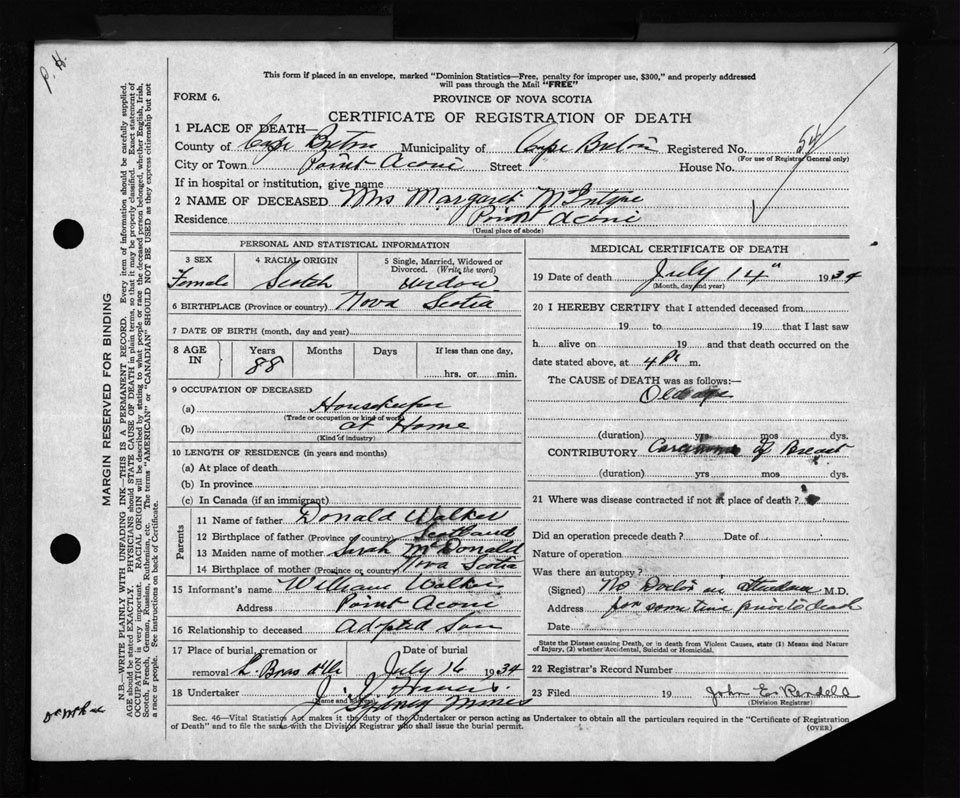 P. H.
This form if placed in an envelope, marked "Dominion Statistics—Free, penalty for improper use, $300," and properly addressed
will pass through the Mail "FREE"
FORM 6.
PROVINCE OF NOVA SCOTIA
CERTIFICATE OF REGISTRATION OF DEATH
1 PLACE OF DEATH—
County of Cape Breton Municipality of Cape Breton Registered No. 54
(For use of Registrar General only)
City or Town Point Aconi Street House No.
If in hospital or institution, give name
2 NAME OF DECEASED Mrs Margaret McIntyre
Residence Point Aconi
(Usual place of abode)
PERSONAL AND STATISTICAL INFORMATION
3 SEX 4 RACIAL ORIGIN 5 Single, Married, Widowed or
Divorced. (Write the word)
Female Scotch Widow
6 BIRTHPLACE (Province or country) Nova Scotia
7 DATE OF BIRTH (month, day and year)
8 AGE IN Years Months Days If less than one day,
88 hrs. or min.
9 OCCUPATION OF DECEASED
(a) Housekeeper
(Trade or occupation or kind of work)
(b) at Home
(Kind of industry)
10 LENGTH OF RESIDENCE (in years and months)
(a) At place of death
(b) In province
(c) In Canada (if an immigrant)
Parents
11 Name of father Donald Walker
12 Birthplace of father (Province or country) Scotland
13 Maiden name of mother Sarah McDonald
14 Birthplace of mother (Province or country) Nova Scotia
15 Informant's name William Walker
Address Point Aconi
16 Relationship to deceased Adopted Son
17 Place of burial, cremation or Date of burial
removal L. Bras d'Or July 16 1934
18 Undertaker J.
(Name and address) Sydney Mines
MEDICAL CERTIFICATE OF DEATH
19 Date of death July 14" 1934
(Month, day and year)
20 I HEREBY CERTIFY that I attended deceased from
19 to 19 that I last saw
h alive on 19 and that death occurred on the
date stated above, at 4 P. m.
The CAUSE of DEATH was as follows:—
Old age
(duration) yrs mos dys.
CONTRIBUTORY Carcinoma of Breast
(duration) yrs mos dys.
21 Where was disease contracted if not at place of death?
Did an operation precede death? Date of
Nature of operation
Was there an autopsy?
(Signed) No Doctor in M.D.
Address for some time prior to death
Date
State the Disease causing Death, or in death from Violent Causes, state (1) Means and Nature
of Injury, (2) whether Accidental, Suicidal or Homicidal.
22 Registrar's Record Number
23 Filed 19 John E. Rendell
(Division Registrar)
Sec. 46—Vital Statistics Act makes it the duty of the Undertaker or person acting as Undertaker to obtain all the particulars required in the "Certificate of Registration
of Death" and to file the same with the Division Registrar who shall issue the burial permit. (OVER)
MARGIN RESERVED FOR BINDING
N.B.—WRITE PLAINLY WITH UNFADING INK—THIS IS A PERMANENT RECORD. Every item of information should be carefully supplied.
AGE should be stated EXACTLY. PHYSICIANS should STATE CAUSE OF DEATH in plain terms, so that it may be properly classified. Exact statement of
OCCUPATION is very important. RACIAL ORIGIN will be described by stating to what people or race the deceased person belonged, whether English, Irish,
Scotch, French, German, Russian, Ruthenian, etc. The terms "AMERICAN" or "CANADIAN" SHOULD NOT BE USED as they express citizenship but not
a race or people. See instructions on back of Certificate.